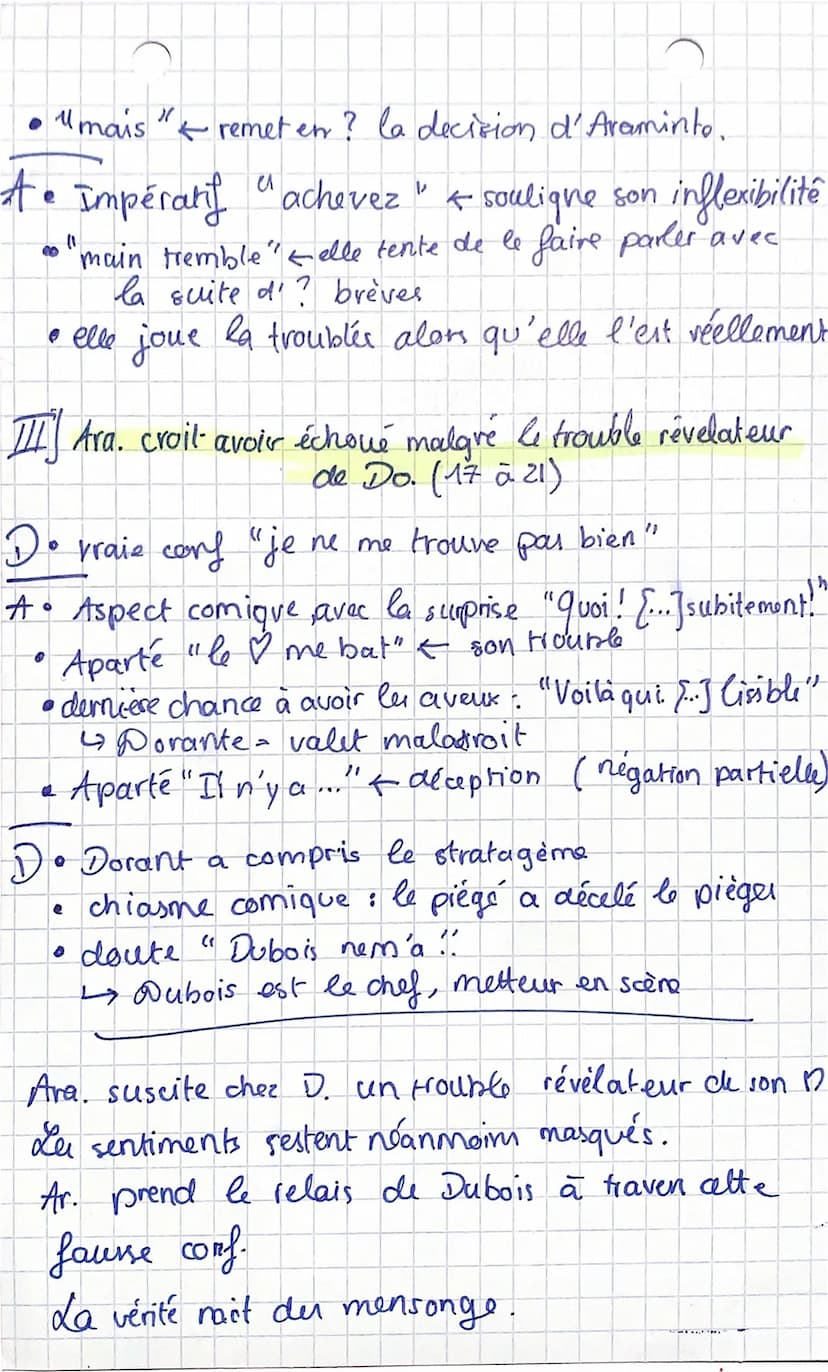 • "mais" ← remet en ? la decision d'Araminte.
A • Impératif "achevez" ← souligne son inflexibilité
• "main tremble" ← elle tente de le faire parler avec
la suite d' ? brèves
• elle joue la troublés alors qu'elle l'est réellement
III] Ara. croit avoir échoué malgré le trouble révelateur
de Do. (17 à 21)
D • vraie conf "je ne me trouve pas bien"
A • Aspect comique avec la surprise "Quoi ! [...] subitement !"
• Aparté "le ♡ me bat" ← son trouble
• dernière chance à avoir les aveux : "Voilà qui [...] lisible"
↳ Dorante = valet maladroit
• Aparté "Il n'y a ..." ← déception (négation partielle)
D • Dorant a compris le stratagème
• chiasme comique : le piégé a décelé le piéger
• doute " Dubois nem'a !!
↳ Dubois est le chef, metteur en scène
Ara. suscite chez D. un trouble révélateur de son ♡
Les sentiments restent néanmoins masqués.
Ar. prend le relais de Dubois à travers cette
fausse conf.
La vérité nait du mensonge.